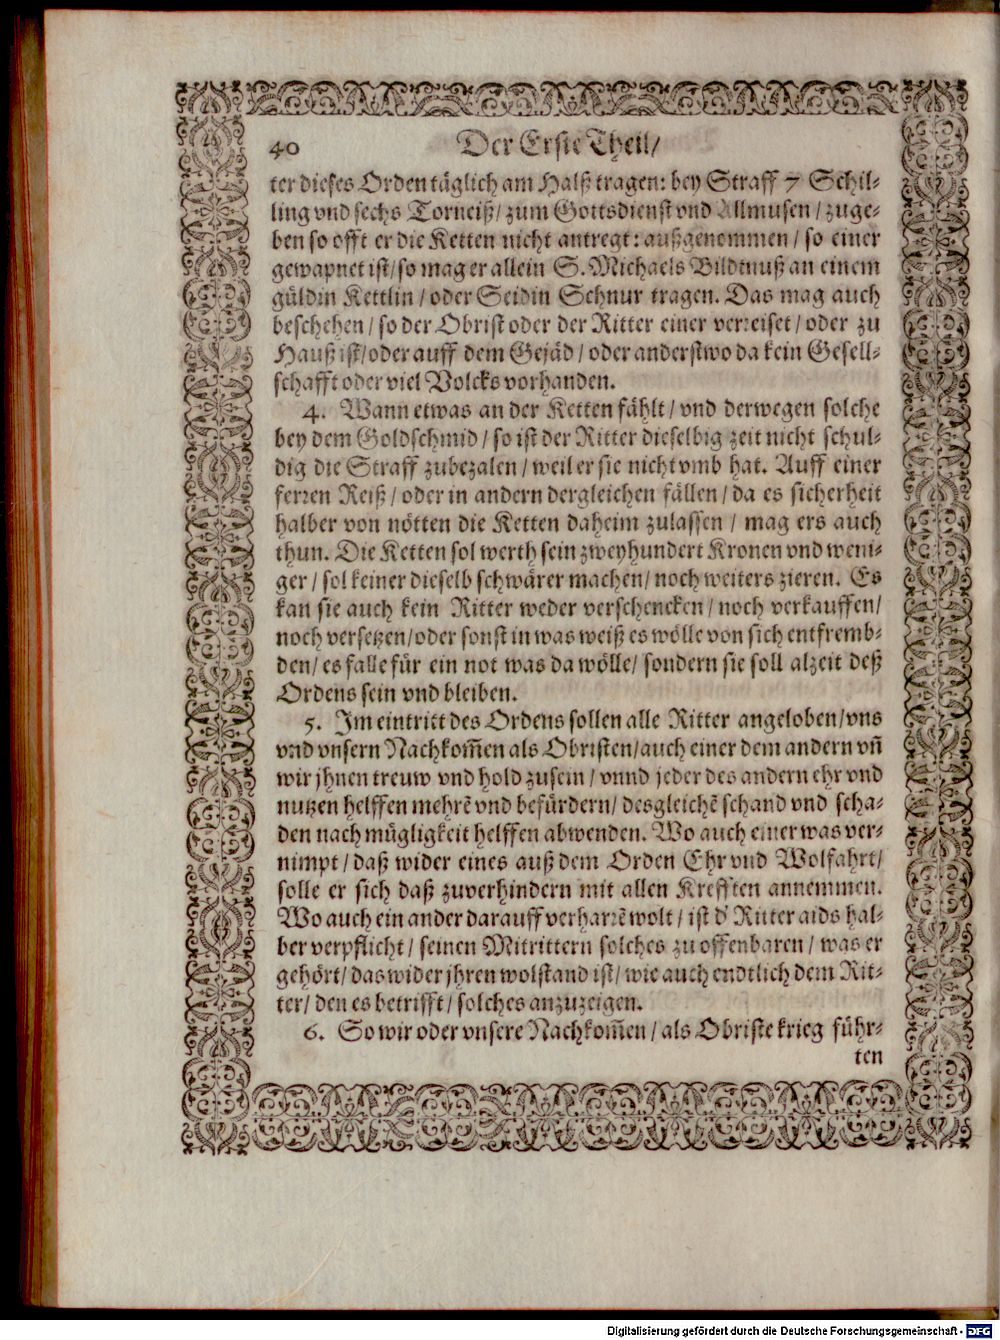 40 Der Erste Theil/
ter dieses Orden täglich am Halß tragen: bey Straff 7 Schil-
ling vnd sechs Torneiß/ zum Gottsdienst vnd Allmusen/ zuge-
ben so offt er die Ketten nicht antregt: außgenommen/ so einer
gewapnet ist/ so mag er allein S. Michaels Bildtnuß an einem
güldin Kettlin/ oder Seidin Schnur tragen. Das mag auch
beschehen/ so der Obrist oder der Ritter einer verreiset/ oder zu
Hauß ist/ oder auff dem Gejäd/ oder anderstwo da kein Gesell-
schafft oder viel Volcks vorhanden.
4. Wann etwas an der Ketten fählt/ vnd derwegen solche
bey dem Goldschmid/ so ist der Ritter dieselbig zeit nicht schul-
dig die Straff zubezalen/ weil er sie nicht vmb hat. Auff einer
ferren Reiß/ oder in andern dergleichen fällen/ da es sicherheit
halber von nötten die Ketten daheim zulassen/ mag ers auch
thun. Die Ketten sol werth sein zweyhundert Kronen vnd weni-
ger/ sol keiner dieselb schwärer machen/ noch weiters zieren. Es
kan sie auch kein Ritter weder verschencken/ noch verkauffen/
noch versetzen/ oder sonst in was weiß es wölle von sich entfremb-
den/ es falle für ein not was da wölle/ sondern sie soll alzeit deß
Ordens sein vnd bleiben.
5. Im eintritt des Ordens sollen alle Ritter angeloben/ vns
vnd vnsern Nachkom̃en als Obristen/ auch einer dem andern vñ
wir jhnen treuw vnd hold zusein/ vnnd jeder des andern ehr vnd
nutzen helffen mehrẽ vnd befürdern/ desgleichẽ schand vnd scha-
den nach mügligkeit helffen abwenden. Wo auch einer was ver-
nimpt/ daß wider eines auß dem Orden Ehr vnd Wolfahrt/
solle er sich daß zuverhindern mit allen Krefften annemmen.
Wo auch ein ander darauff verharrẽ wolt/ ist d' Ritter aids hal-
ber verpflicht/ seinen Mitrittern solches zu offenbaren/ was er
gehört/ das wider jhren wolstand ist/ wie auch endtlich dem Rit-
ter/ den es betrifft/ solches anzuzeigen.
6. So wir oder vnsere Nachkom̃en/ als Obriste krieg führ-
ten
Digitalisierung gefördert durch die Deutsche Forschungsgemeinschaft - DFG